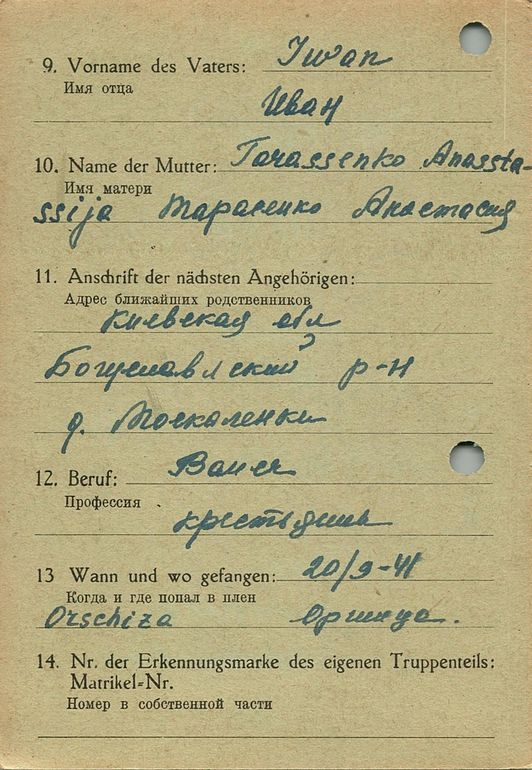 9. Vorname des Vaters: Iwan
Имя отца
Иван
10. Name der Mutter: Tarassenko Anassta-
Имя матери
ssija Тарасенко Анастасия
11. Anschrift der nächsten Angehörigen:
Адрес ближайших родственников
Киевская обл
Богуславлский р-н
д. Москаленки
12. Beruf: Bauer
Профессия
крестьянин
13 Wann und wo gefangen: 20/9-41
Когда и где попал в плен
Orschiza Оржица.
14. Nr. der Erkennungsmarke des eigenen Truppenteils:
Matrikel-Nr.
Номер в собственной части